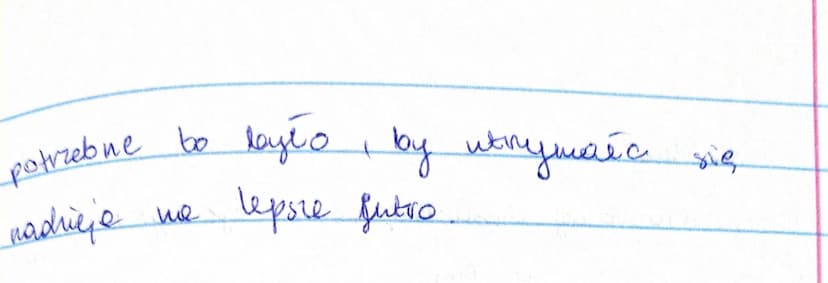 potrzebne bo było, by utrzymała się
nadzieja na lepsze jutro.